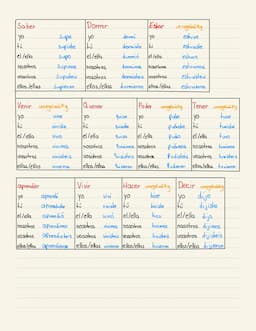 Saber Dormir Estar irregularity
yo supe yo dormí yo estuve
tú supiste tú dormiste tú estuviste
el/ella supo el/ella durmió el/ella estuvo
nosotros supimos nosotros dormimos nosotros estuvimos
vosotros supisteis vosotros dormisteis vosotros estuvisteis
ellos/ellas supieron ellos/ellas durmieron ellos/ellas estuvieron
Venir irregularity Querer Poder irregularity Tener irregularity
yo vine yo quise yo pude yo tuve
tú viniste tú quisiste tú pudiste tú tuviste
el/ella vino el/ella quiso el/ella pudo el/ella tuvo
nosotros vinimos nosotros quisimos nosotros pudimos nosotros tuvimos
vosotros vinisteis vosotros quisisteis vosotros pudisteis vosotros tuvisteis
ellos/ellas vinieron ellos/ellas quisieron ellos/ellas pudieron ellos/ellas tuvieron
aprender Vivir Hacer irregularity Decir irregularity
yo aprendí yo viví yo hice yo dije
tú aprendiste tú viviste tú hiciste tú dijiste
el/ella aprendió el/ella vivió el/ella hizo el/ella dijo
nosotros aprendimos nosotros vivimos nosotros hicimos nosotros dijimos
vosotros aprendisteis vosotros vivisteis vosotros hicisteis vosotros dijisteis
ellos/ellas aprendieron ellos/ellas vivieron ellos/ellas hicieron ellos/ellas dijeron